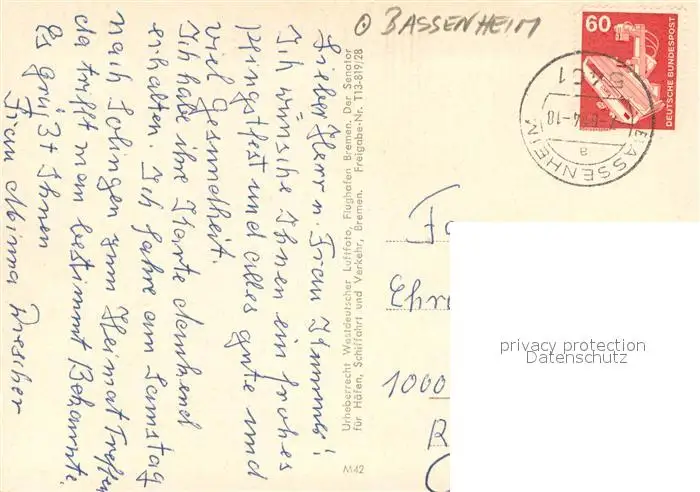 ⊙ BASSENHEIM
60
DEUTSCHE BUNDESPOST
5451
BASSENHEIM
a
Lieber Herr u. Frau Stummer!
Ich wünsche Ihnen ein frohes
Pfingstfest und alles gute und
viel Gesundheit.
Ich habe ihre Karte dankend
erhalten. Ich fahre am Samstag
nach Solingen zum Heimat Treffen
da trifft man bestimmt Bekannte.
Es grüßt Ihnen
Frau Minna Drescher
Urheberrecht Westdeutscher Luftfoto, Flughafen Bremen. Der Senator
für Häfen, Schiffahrt und Verkehr, Bremen. Freigabe-Nr. T13-819/28
M42
Fa
Ehr
1000
R
privacy protection
Datenschutz